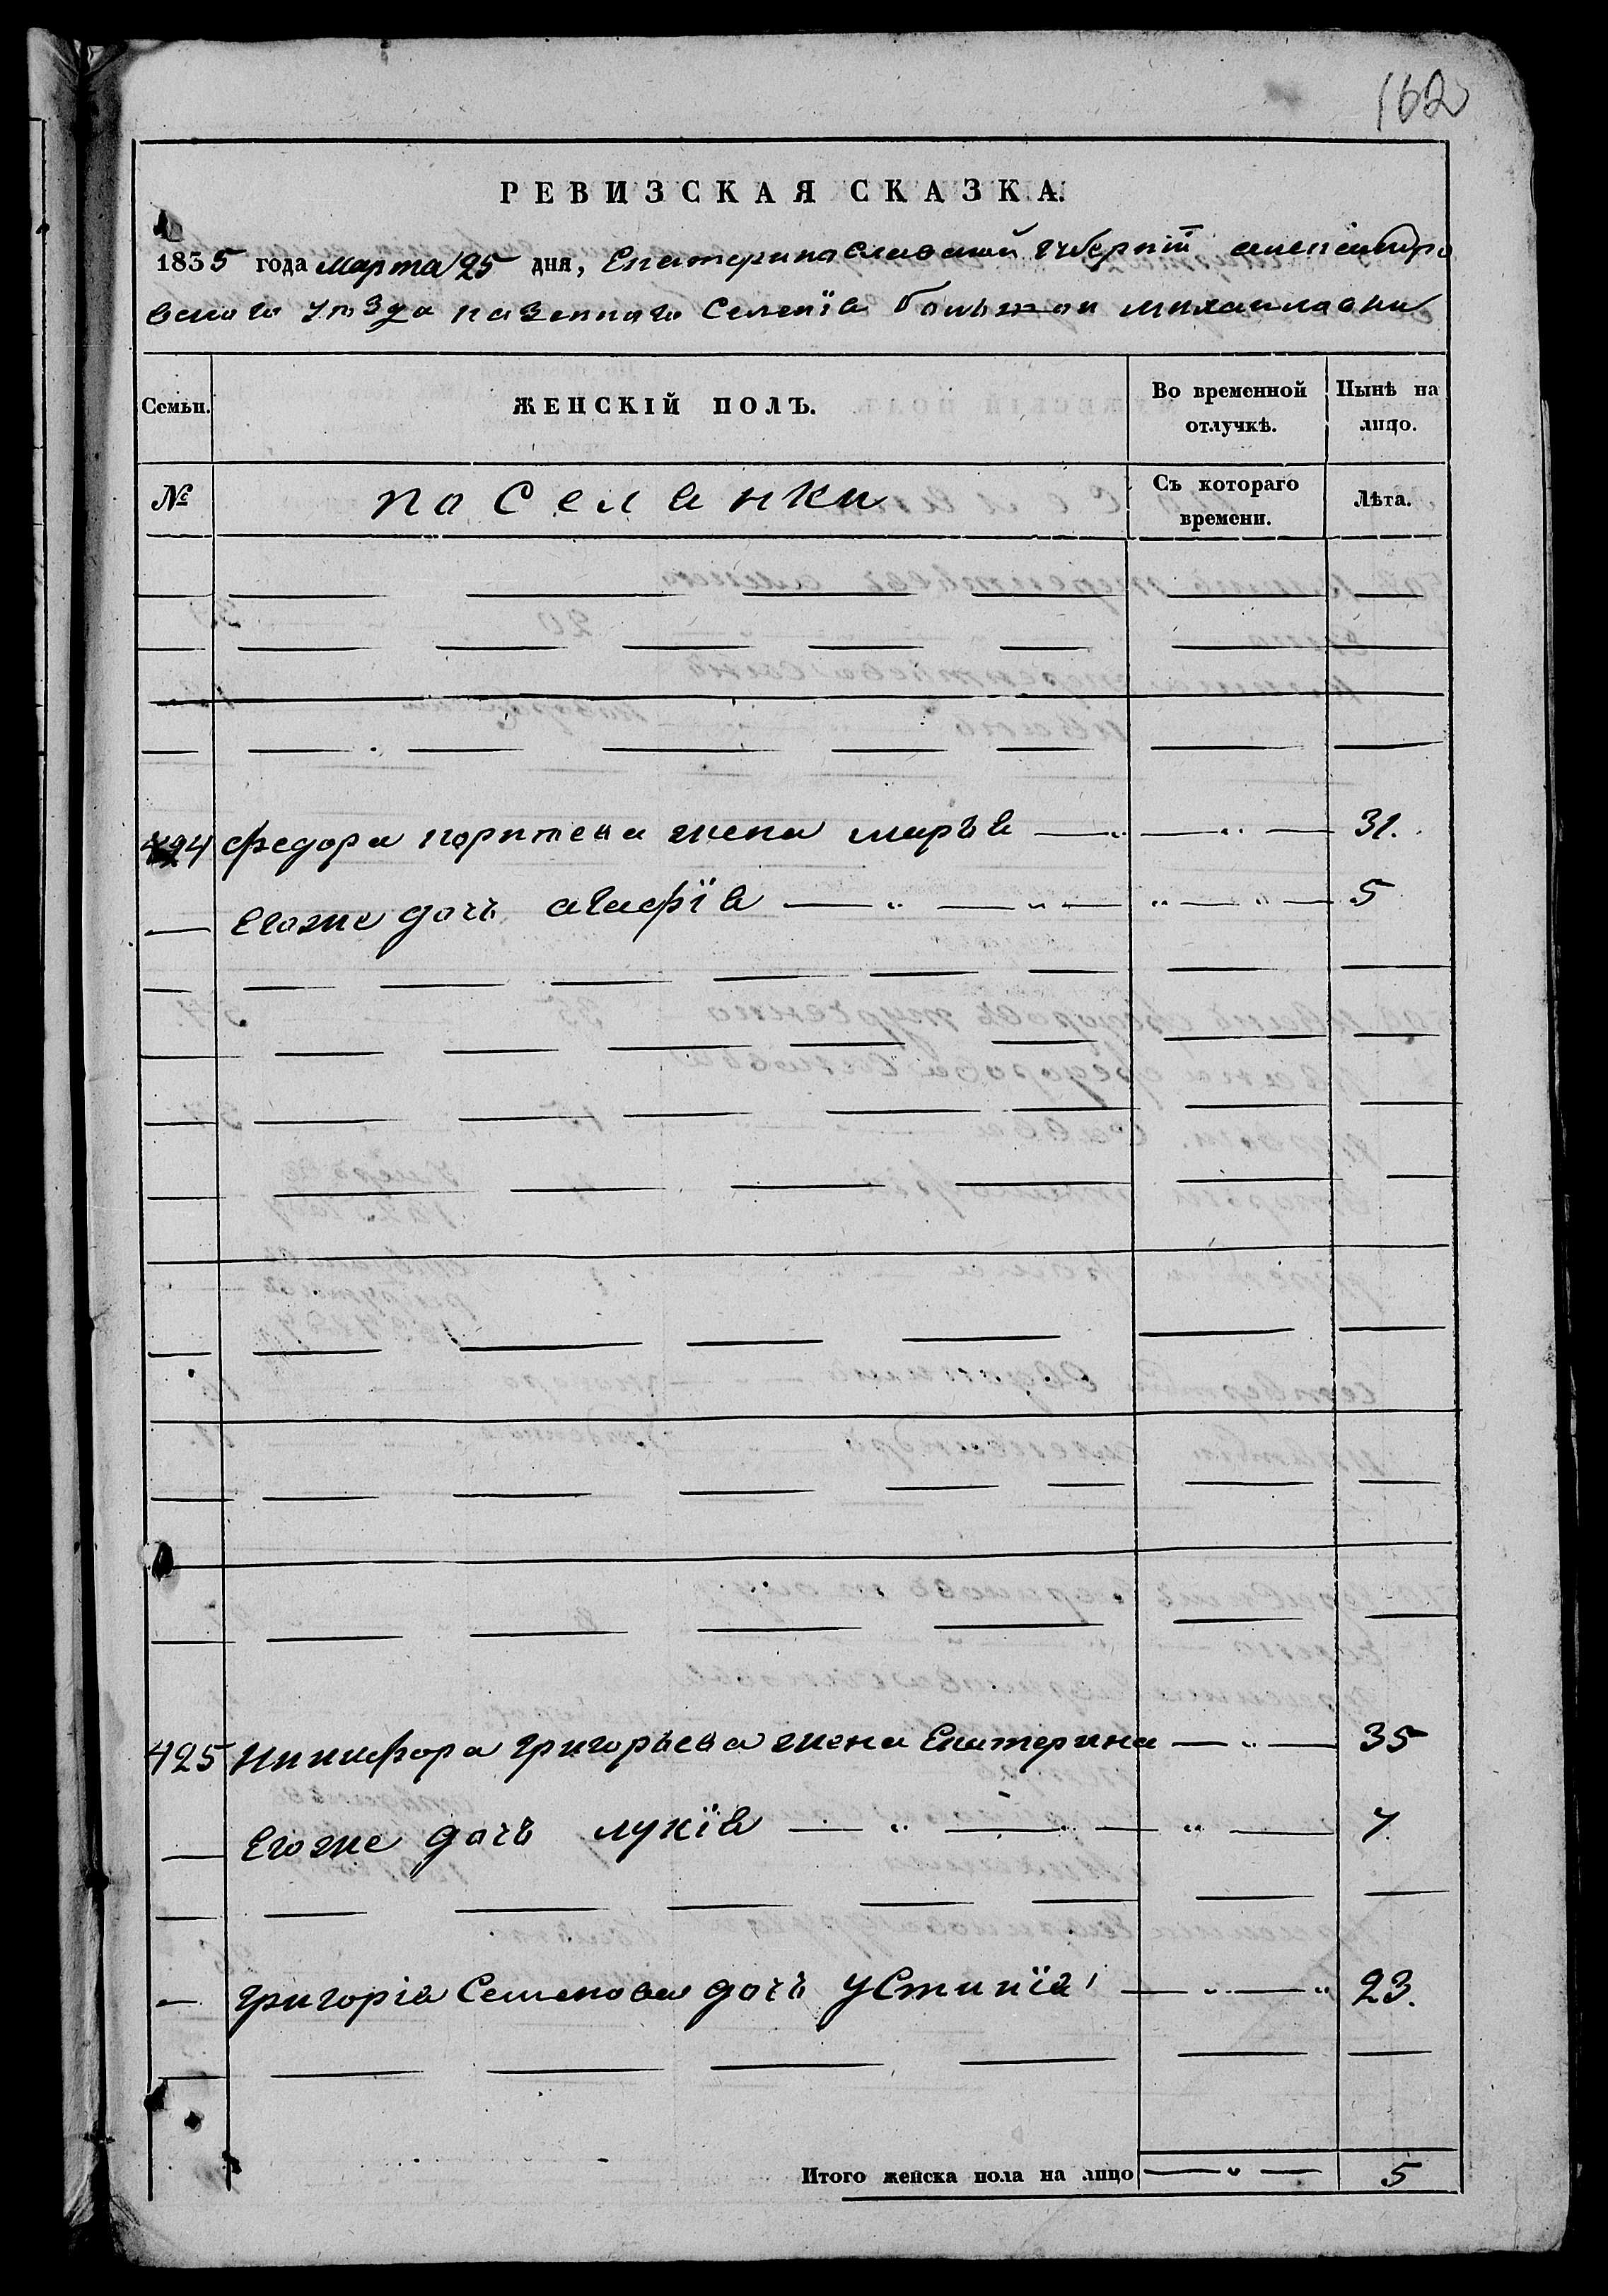 162
РЕВИЗСКАЯ СКАЗКА.
1835 года марта 25 дня, Екатеринославской губернiи александро
вского уезда казенного Селенiя большой михаиловки
Семьи.
ЖЕНСКІЙ ПОЛЪ.
Во временной отлучкѣ.
Нынѣ на лицо.
№
поселянки
Съ котораго времени.
Лѣта.
494 федора жена марья — „ — „ — 31.
— Егоже дочь агафiя — „ — „ — „ — „ — 5
495 никифора григорьева жена Екатерина — „ — 35
— Егоже дочь лукiя — „ — „ — „ — 7
— григорiя Семенова дочь Устинiя — „ — „ 23.
Итого женска пола на лицо — „ — 5